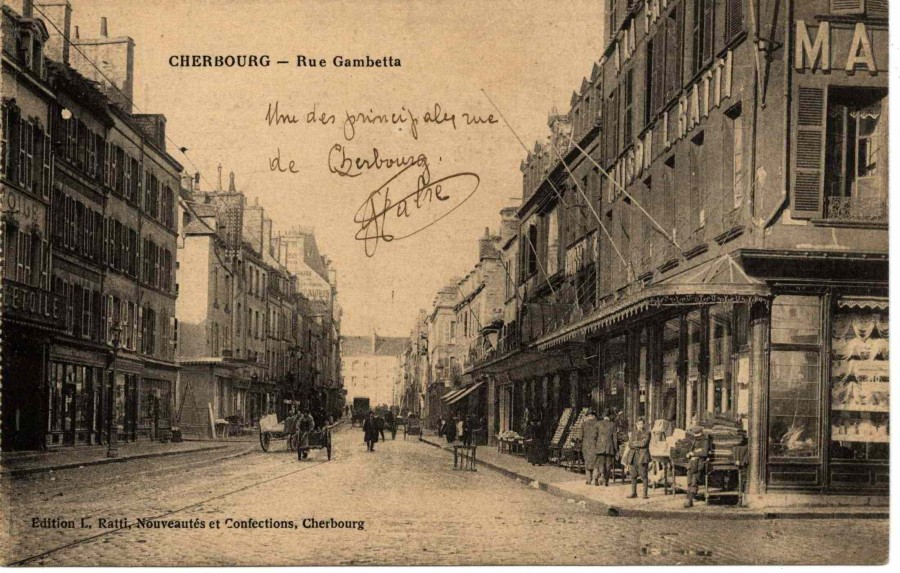 CHERBOURG – Rue Gambetta
Une des principales rue
de Cherbourg.
MA
Edition L. Ratti, Nouveautés et Confections, Cherbourg